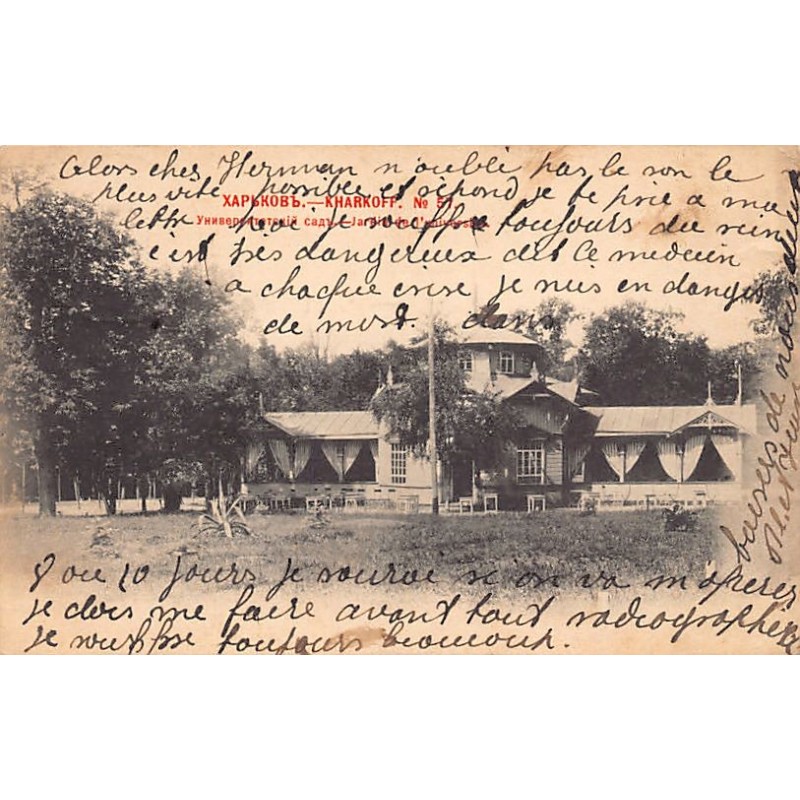 Alors cher Herman n'oublé pas le son le
plus vite possible et répond je te prie a ma
ХАРЬКОВЪ.—KHARKOFF. № 57.
Университетскій садъ.—Jardin de l'université.
lettre car je souffre toujours du rein
c'est très dangereux dit le medecin
a chaque crise je suis en danger
de mort. dans
8 ou 10 jours je saurai si on va m'operer
je dois me faire avant tout radiographer
je souffre toujours beaucoup.
baisers de nous deux